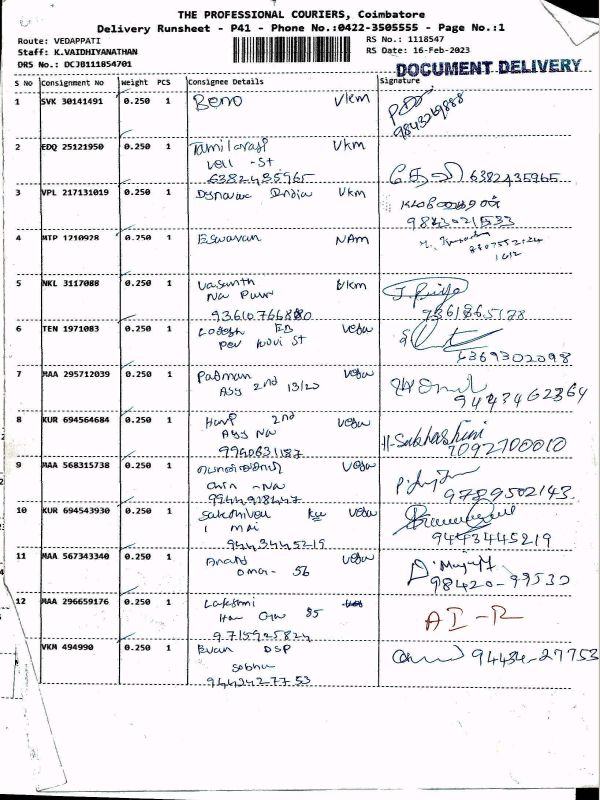 THE PROFESSIONAL COURIERS, Coimbatore
Delivery Runsheet - P41 - Phone No.:0422-3505555 - Page No.:1
Route: VEDAPPATI
RS No.: 1118547
Staff: K.VAIDHIYANATHAN
RS Date: 16-Feb-2023
DRS No.: DCJB111854701
DOCUMENT DELIVERY
S No Consignment No Weight PCS Consignee Details Signature
1 SVK 30141491 0.250 1 Beno Vkm
9843269888
2 EDQ 25121950 0.250 1 Tamilarasi Vkm
Vell - St
6382435965 6382435965
3 VPL 217131019 0.250 1 India Vkm
9843021533
4 MTP 1210928 0.250 1 Eswaran NAm
5 NKL 3117088 0.250 1 Vasanth Vkm
Na Puur
9361076 7361865178
6 TEN 1971083 0.250 1 EB Vedu
St
6369302098
7 MAA 295712039 0.250 1 Padman Vedu
Ayy 2nd 13/20 9443462364
8 KUR 694564684 0.250 1 Hari 2nd Vedu
Ayy Na H-Subhashini
9940631187 7092700010
9 MAA 568315738 0.250 1 Vedu
Chin - Na
9944918447 9789502143
10 KUR 694543930 0.250 1 Sakthivel Vedu
1 mai
9443445219 9443445219
11 MAA 567343340 0.250 1 Anand Vedu
Omar - 56
98420-99532
12 MAA 296659176 0.250 1 Lakshmi
85 AI-R
9715925824
VKM 494990 0.250 1 Evan DSP
Sobha 94434-27753
9443427753